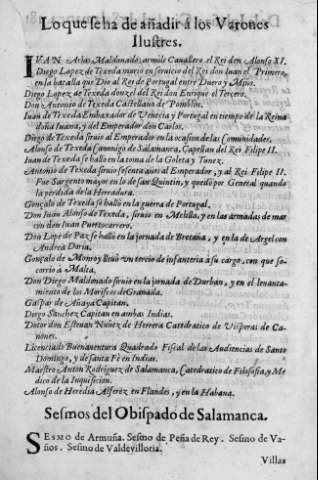 Lo que se ha de añadir à los Varones
Ilustres.
IVAN Arias Maldonado: armóle Cauallero el Rei don Alonso XI.
Diego Lopez de Texeda murio en seruicio del Rei don Iuan el Primero,
en la batalla que Dio al Rei de Portugal entre Duero y Miño.
Diego Lopez de Texeda donzel del Rei don Enrique el Tercero.
Don Antonio de Texeda Castellano de Pomblin.
Iuan de Texeda Embaxador de Venecia y Portugal en tiempo de la Reina
doña Iuana, y del Emperador don Carlos.
Diego de Texeda siruió al Emperador en la ocasion de las Comunidades.
Alonso de Texeda Canonigo de Salamanca, Capellan del Rei Filipe II.
Iuan de Texeda se halló en la toma de la Goleta y Tunez.
Antonio de Texeda siruió sesenta años al Emperador, y al Rei Filipe II.
Fue Sargento mayor en lo de san Quintin, y quedó por General quando
la perdida de la Herradura.
Gonçalo de Texeda se halló en la guerra de Portugal.
Don Iuan Alonso de Texeda, siruio en Melilla, y en las armadas de mar
con don Iuan Puertocarrero.
Don Lope de Paz se halló en la jornada de Bretaña, y en la de Argel con
Andrea Doria.
Gonçalo de Monroy lleuó vn tercio de infanteria à su cargo, con que so-
corrio a Malta.
Don Diego Maldonado siruio en la jornada de Durban, y en el leuanta-
miento de los Moriscos de Granada.
Gaspar de Añaya Capitan.
Diego Sanchez Capitan en ambas Indias.
Dotor don Esteuan Nuñez de Herrera Catedratico de Visperas de Ca-
nones.
Licenciado Buenauentura Quadrado Fiscal de las Audiencias de Santo
Domingo, y de santa Fè en Indias.
Maestro Anton Rodriguez de Salamanca, Catedratico de Filosofia, y Me
dico de la Inquisicion.
Alonso de Heredia Alferez en Flandes, y en la Habana.
Sesmos del Obispado de Salamanca.
SESMO de Armuña. Sesmo de Peña de Rey. Sesmo de Va-
ños. Sesmo de Valdevilloria.
Villas